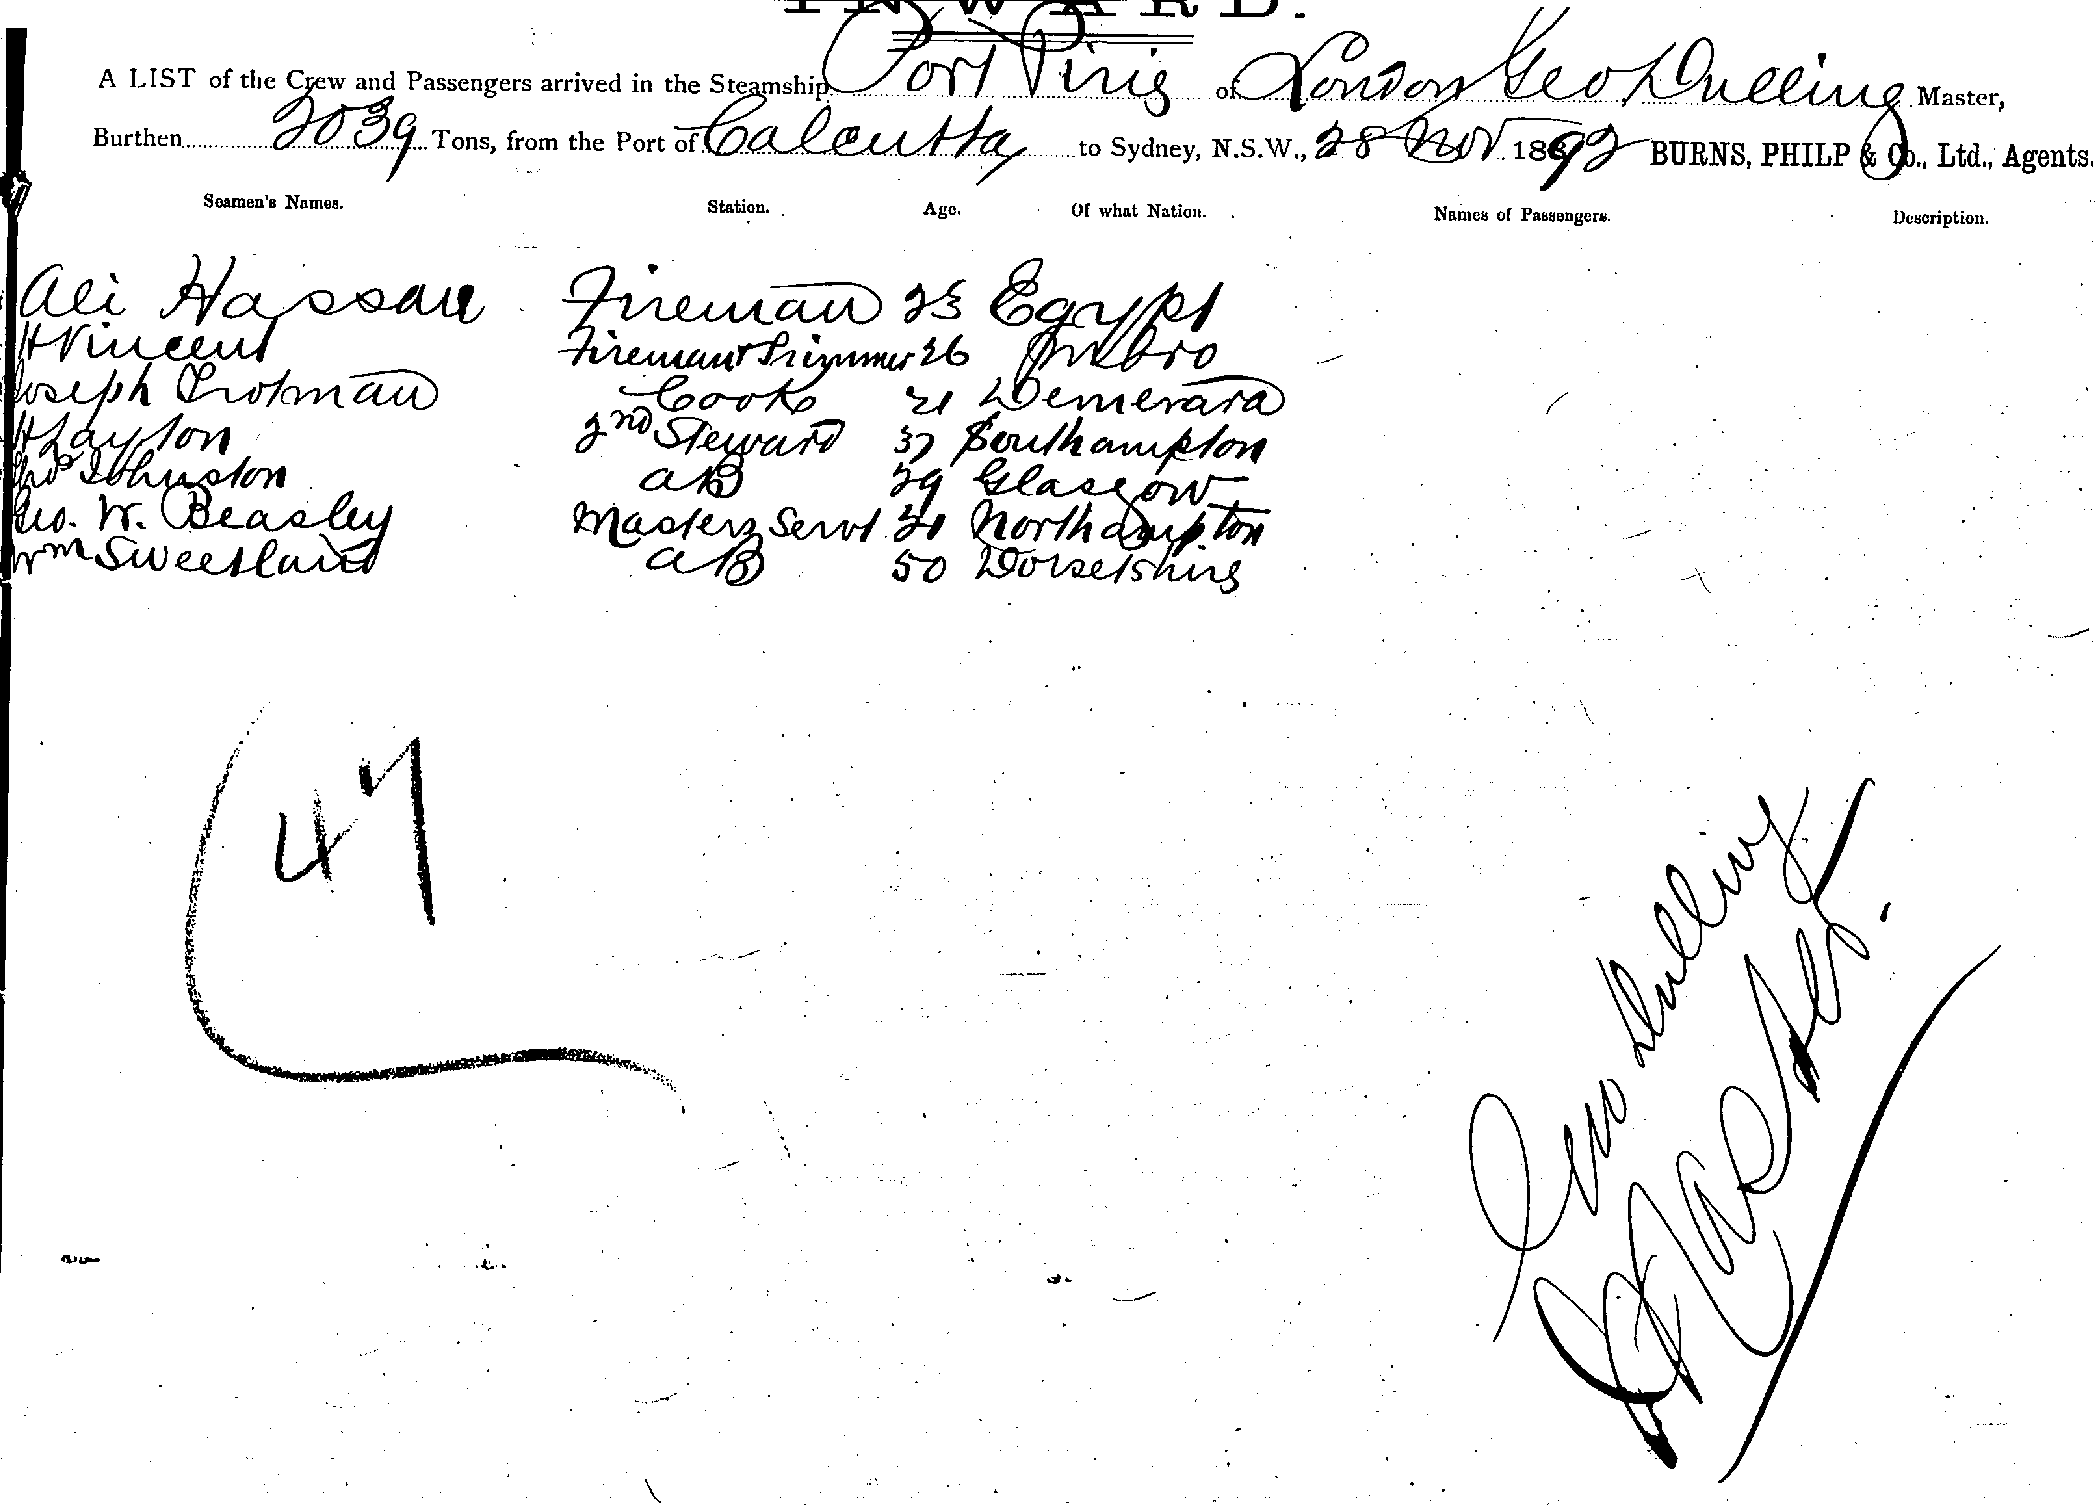 INWARD.
A LIST of the Crew and Passengers arrived in the Steamship Port Pirie of London Geo Dulling Master,
Burthen 2039 Tons, from the Port of Calcutta to Sydney, N.S.W., 28 Nov 1892 BURNS, PHILP & Co., Ltd., Agents.
Seamen's Names. Station. Age. Of what Nation. Names of Passengers. Description.
Ali Hassan Fireman 25 Egypt
H Vincent Fireman & Trimmer 26
Joseph Trotman Cook 21 Demerara
H Layton 2nd Steward 37 Southampton
Johnston AB 29 Glasgow
Geo. W. Beasley Masters Servt 21 Northampton
Wm Sweetland AB 50 Dorsetshire
47
Geo Dulling
Master.